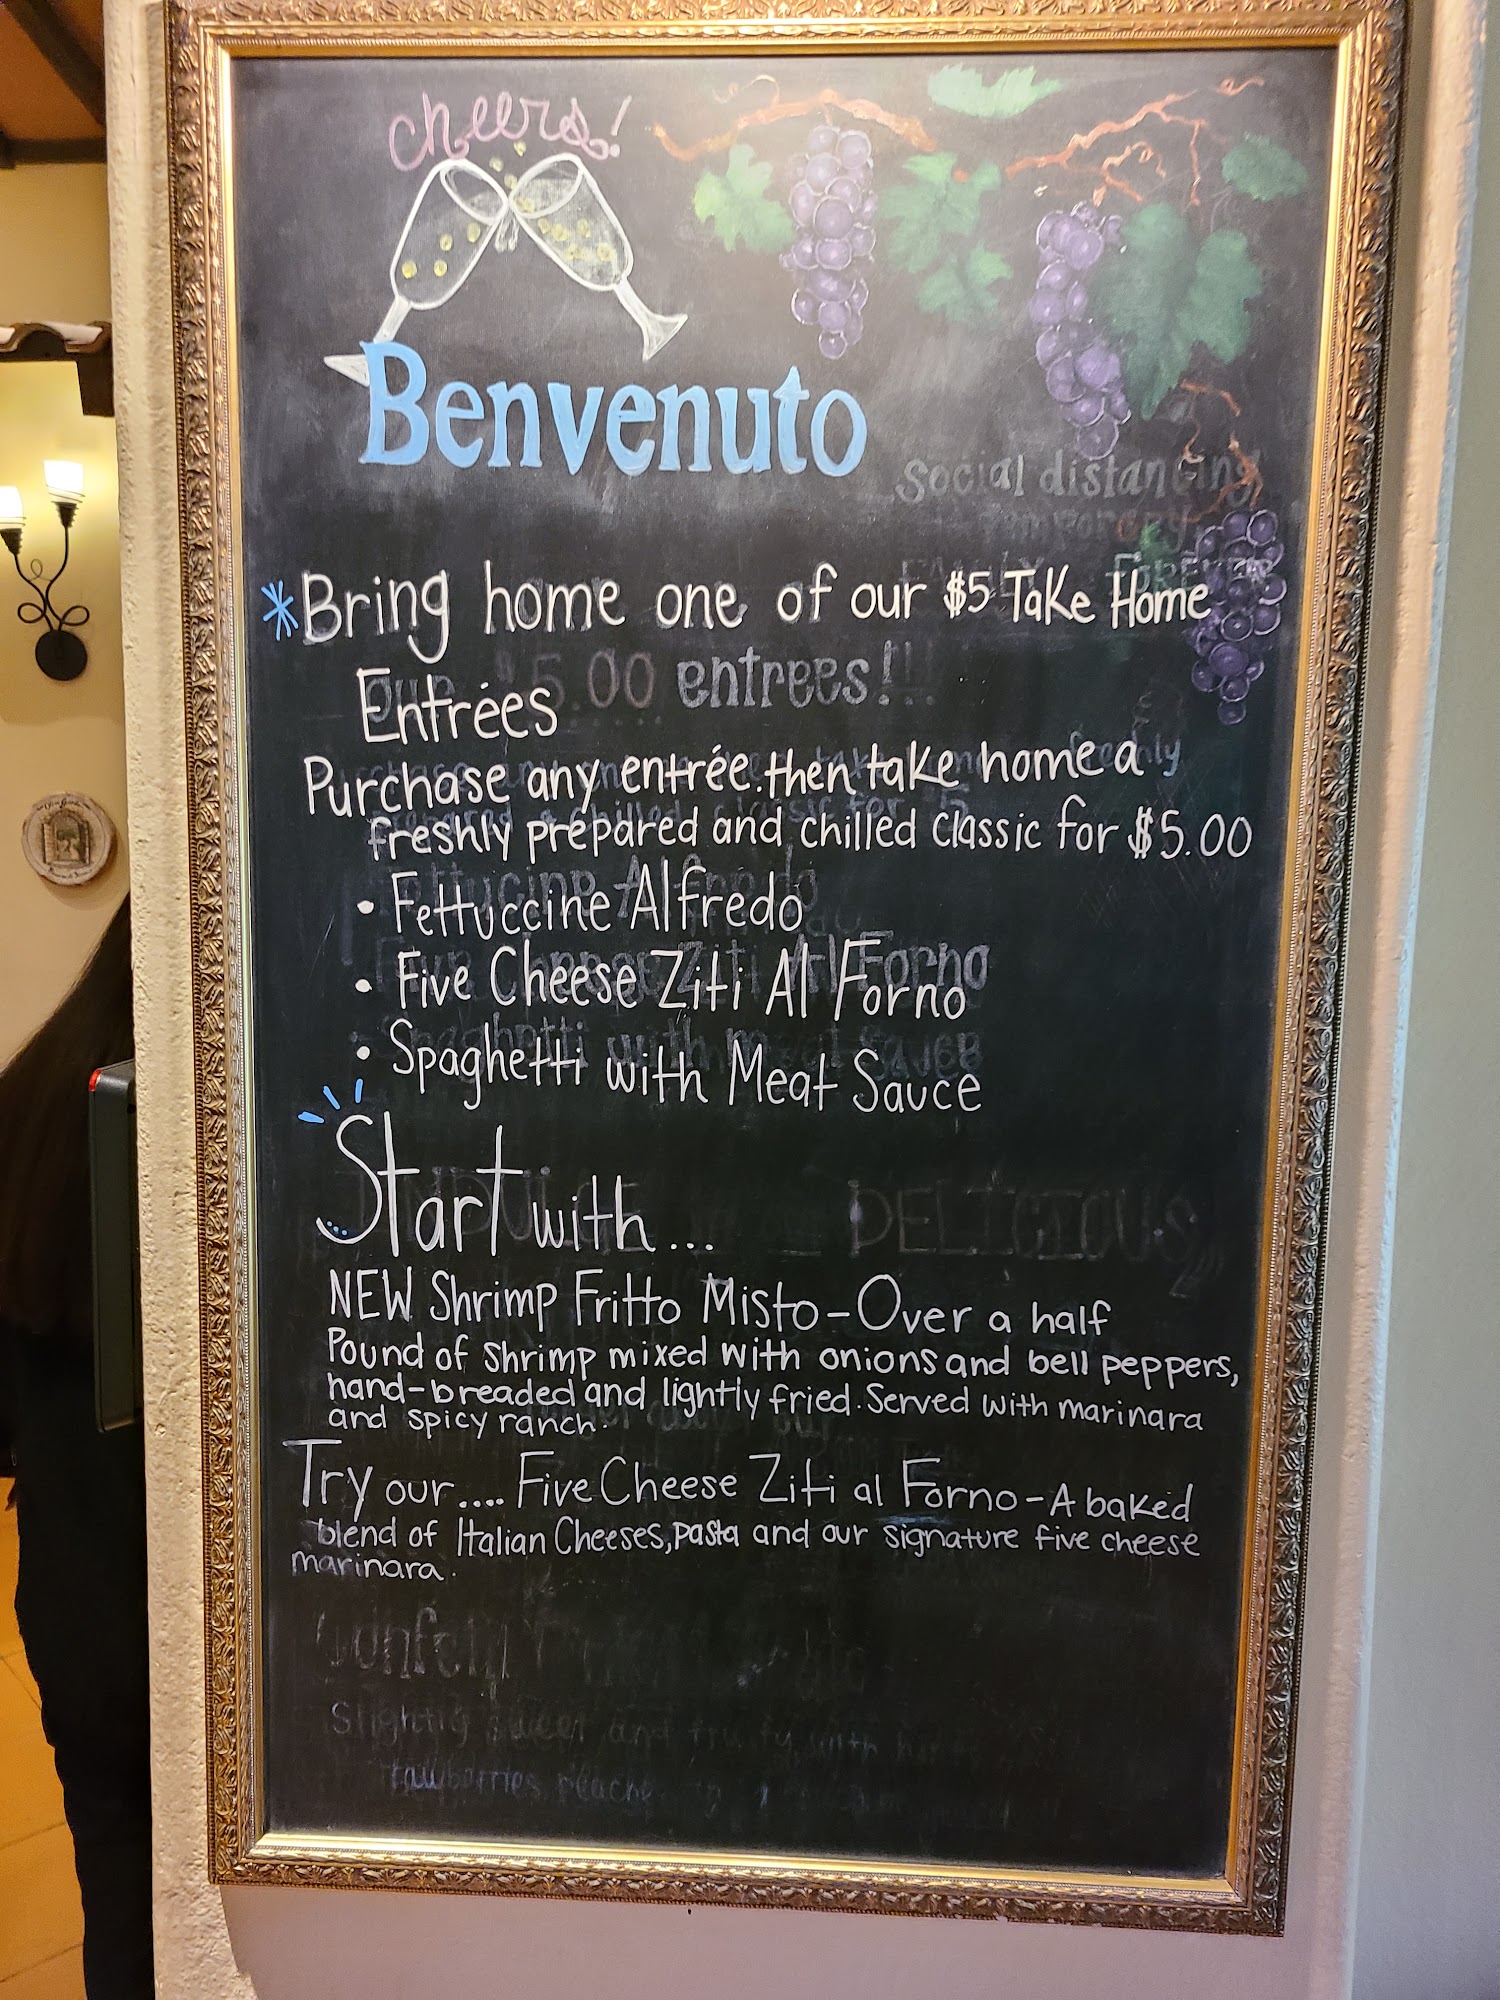 cheers!
Benvenuto
social distancing
temporary
*Bring home one of our $5 Take Home
$5.00 entrees!!!
Entrées
Purchase any entrée. then take home a
freshly prepared and chilled classic for $5.00
• Fettuccine Alfredo
• Five Cheese Ziti Al Forno
• Spaghetti with Meat Sauce
Start with...
DELICIOUS
NEW Shrimp Fritto Misto - Over a half
Pound of shrimp mixed with onions and bell peppers,
hand-breaded and lightly fried. Served with marinara
and spicy ranch.
Try our.... Five Cheese Ziti al Forno - A baked
blend of Italian Cheeses, pasta and our signature five cheese
marinara.
slightly sweet and fruity with